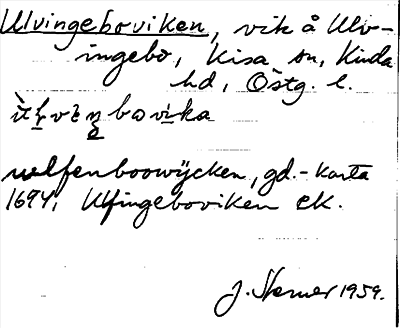 Ulvingeboviken, vik å Ulv-
ingebo, Kisa sn, Kinda
hd, Östg. l.
ulfenboowÿcken, gd.-karta
1694, Ulfingeboviken EK.
J. Sterner 1959.